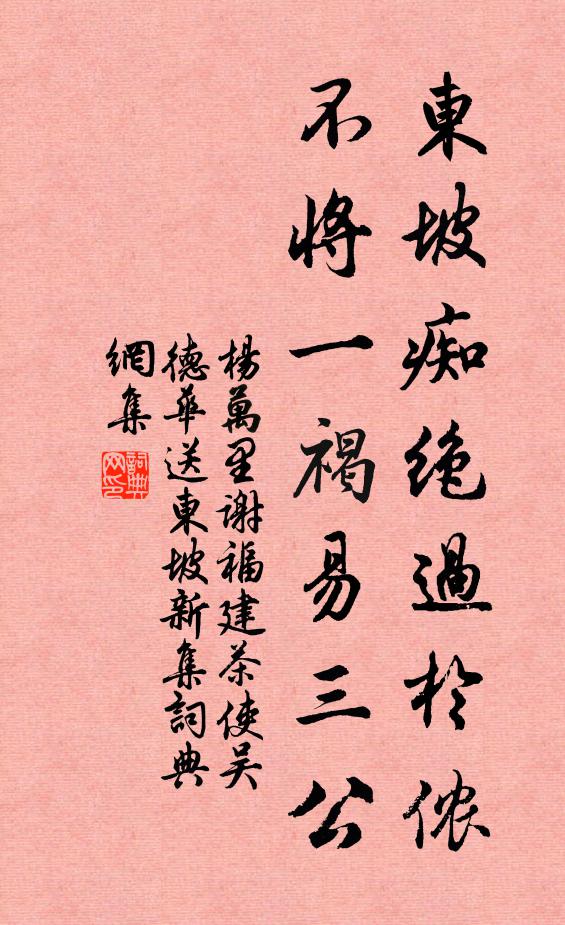 東坡痴絶過於侬
不將一褐易三公
楊萬里謝福建茶使吴
德華送東坡新集詞典
網集
詞典
网印